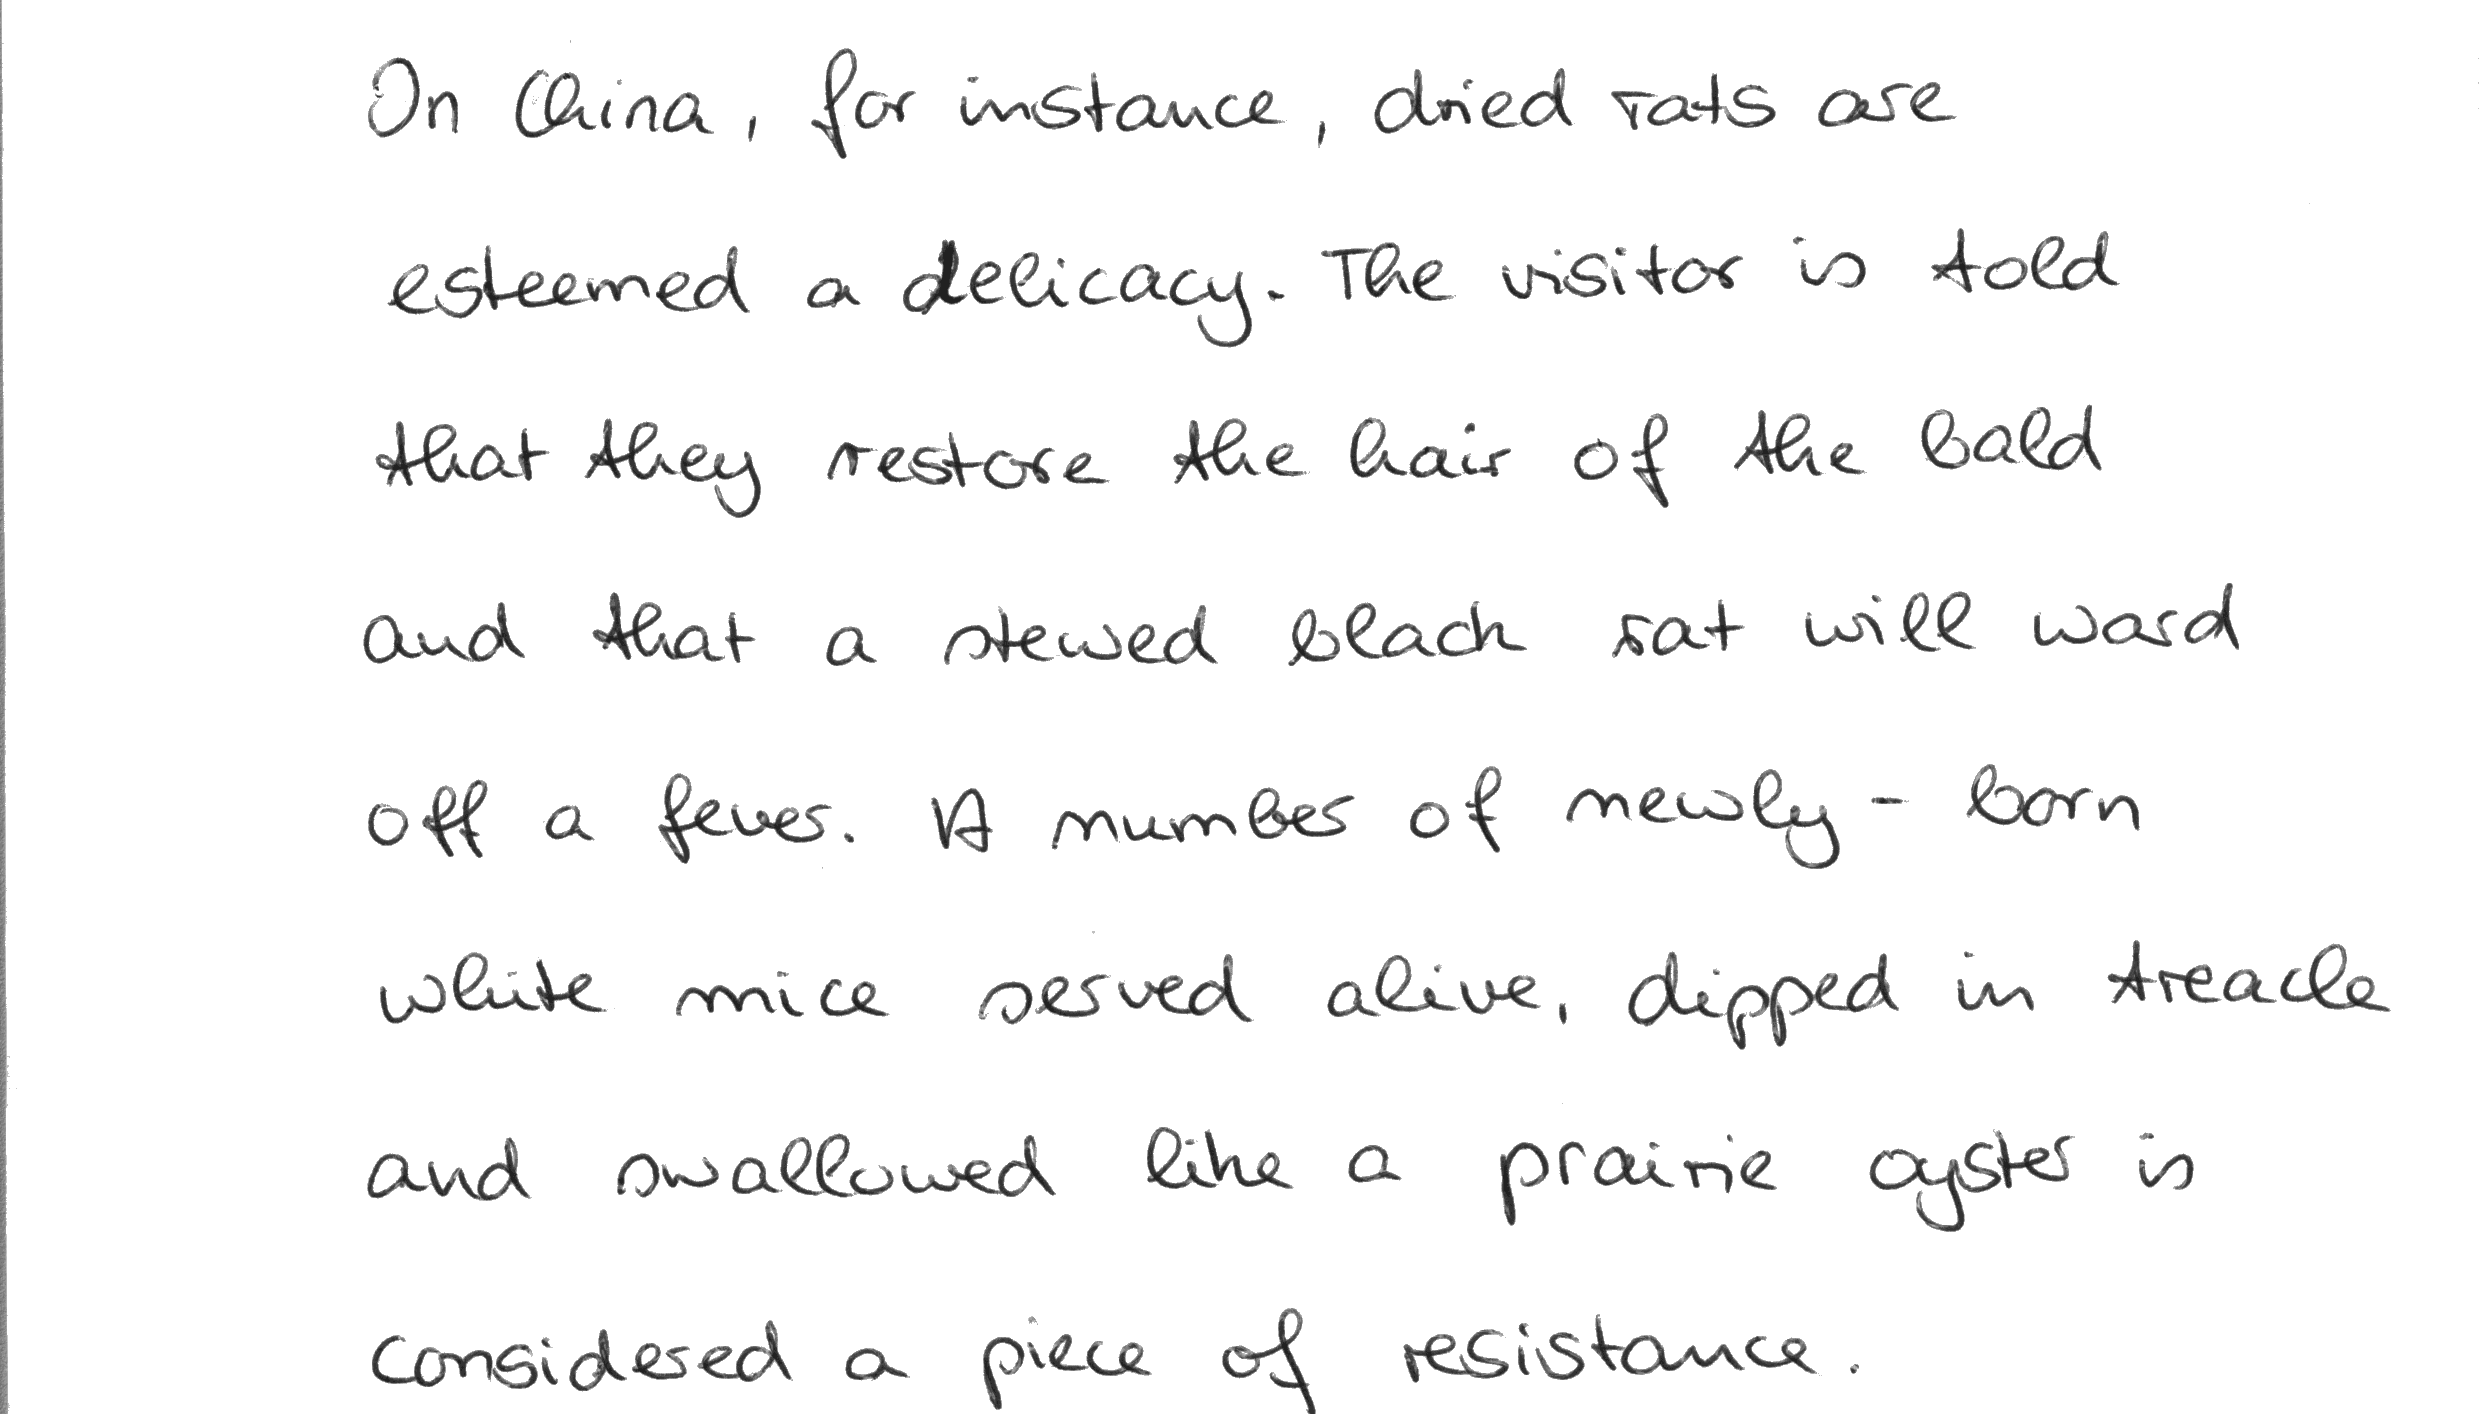 In China, for instance, dried rats are
esteemed a delicacy. The visitor is told
that they restore the hair of the bald
and that a stewed black rat will ward
off a fever. A number of newly-born
white mice served alive, dipped in treacle
and swallowed like a prairie oyster is
considered a piece of resistance.